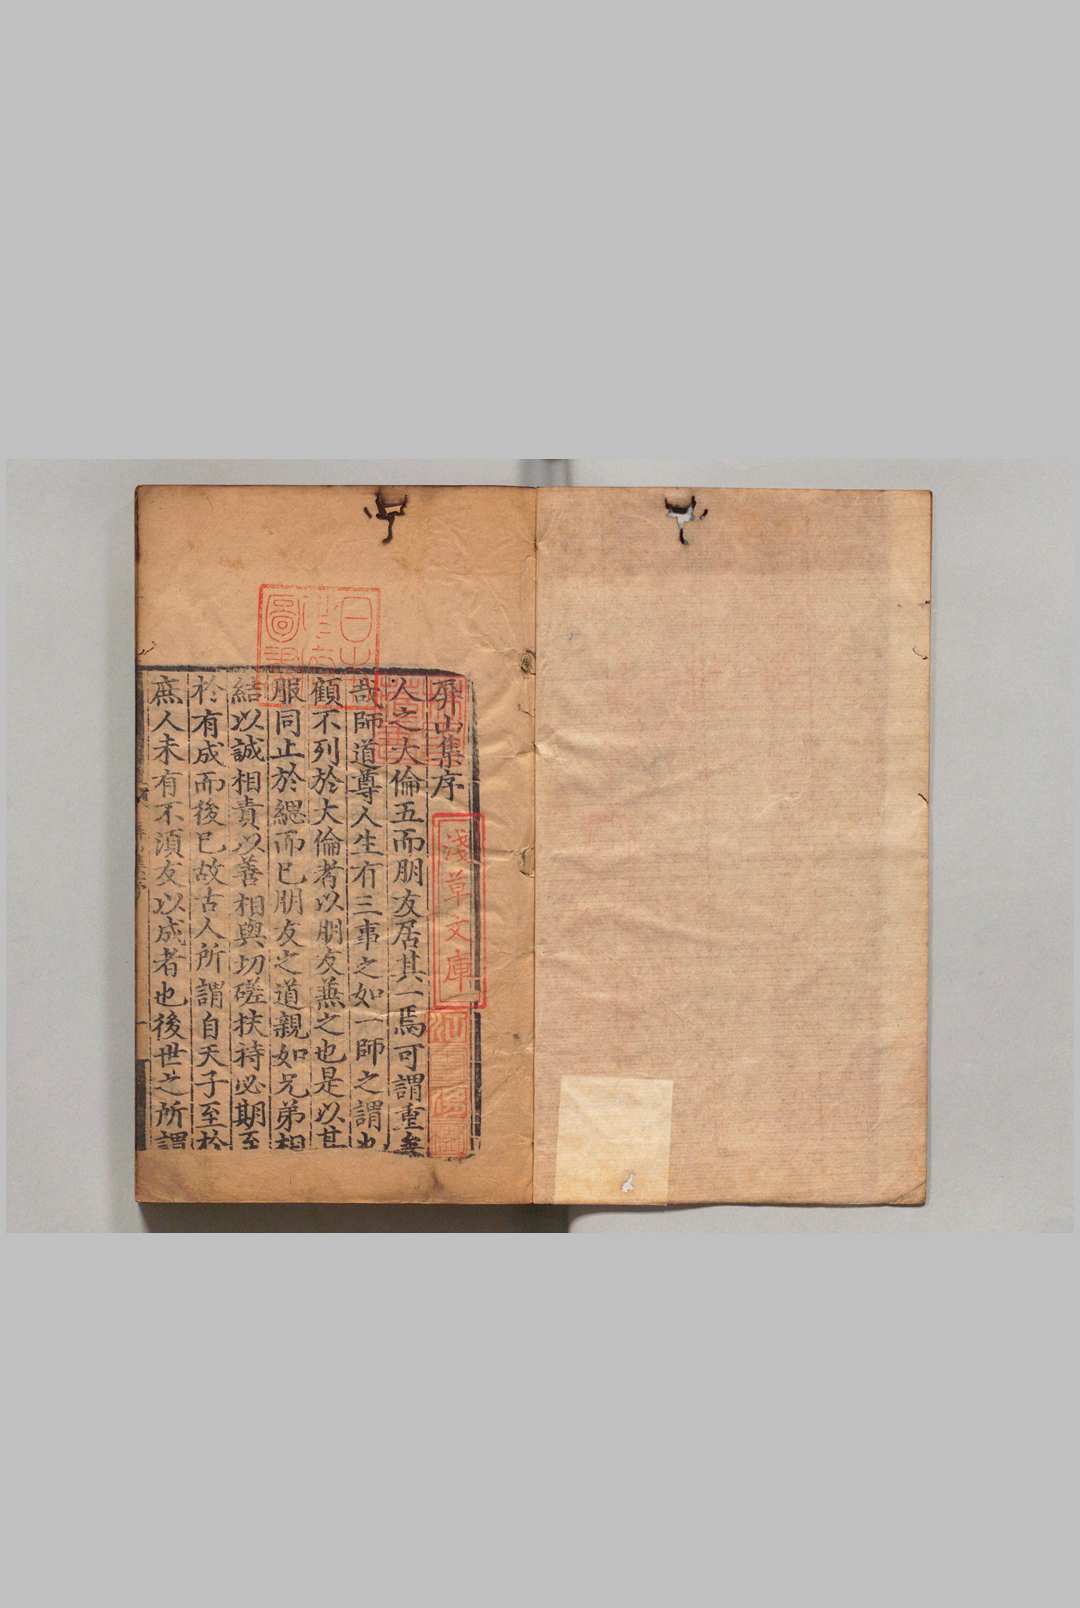 屏山集序
人之大倫五而朋友居其一焉可謂重矣
哉師道尊人生有三事之如一師之謂也
顧不列於大倫者以朋友兼之也是以其
服同止於緦而已朋友之道親如兄弟相
結以誠相責以善相與切磋扶持必期至
於有成而後已故古人所謂自天子至於
庶人未有不須友以成者也後世之所謂
淺草文庫